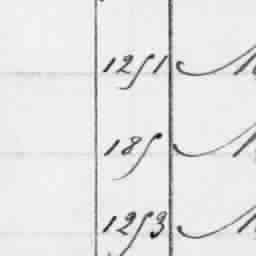 1251
185
1253